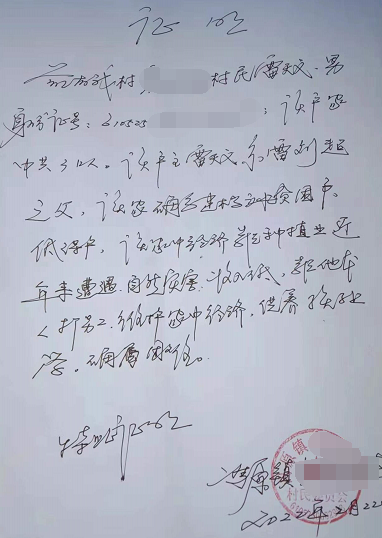 证明
兹有我村 村民雷天文，男
身份证号：610525 ；该户家
中共3口人。该户主雷天文，系雷刘超
之父，该家确系建档立卡贫困户。
低保户，该家中经济靠种植业近
年来遭遇自然灾害，收入低，靠他本
人打劳工，维护家中经济，供养孩上
学，确属困难。
特此证明
冯原镇
村民委员会
2022年2月22